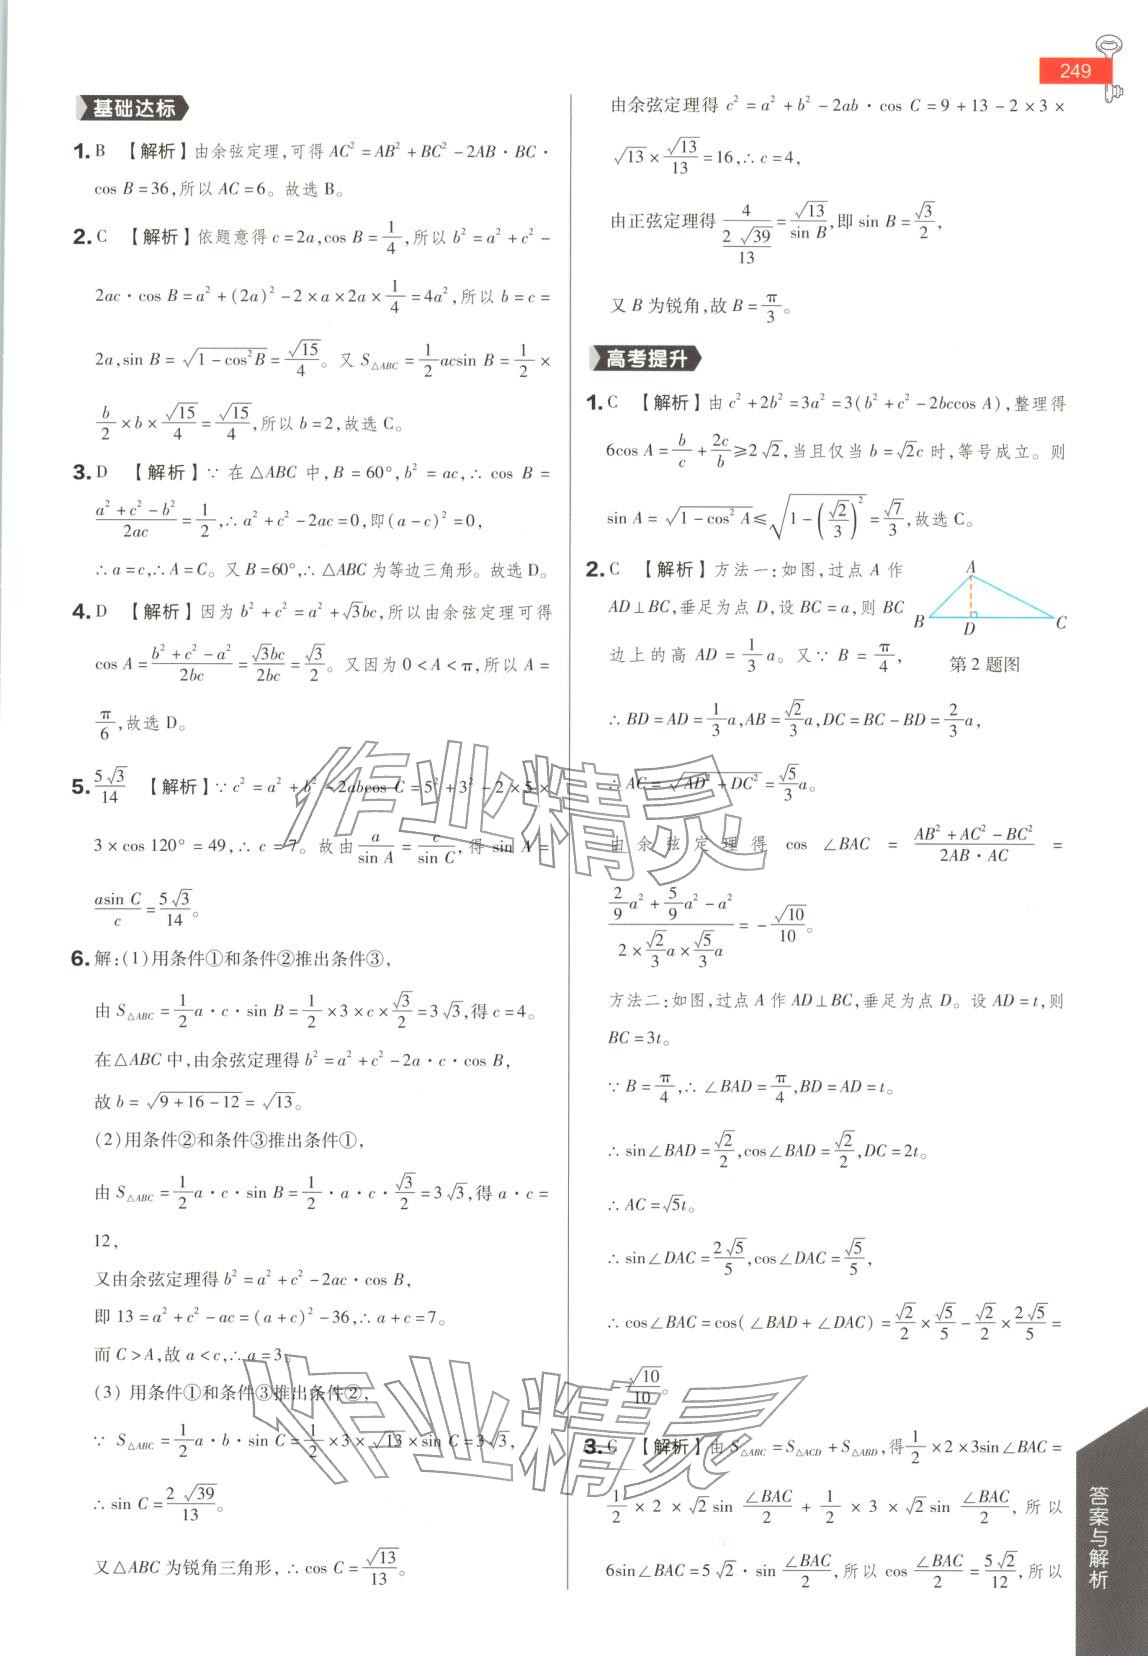 249
基础达标
1. B 【解析】由余弦定理,可得 AC²=AB²+BC²-2AB·BC·
cos B=36,所以 AC=6。故选 B。
2. C 【解析】依题意得 c=2a,cos B=1/4,所以 b²=a²+c²-
2ac·cos B=a²+(2a)²-2×a×2a×1/4=4a²,所以 b=c=
2a,sin B=√(1-cos²B)=√15/4。又 S△ABC=1/2acsin B=1/2×
b/2×b×√15/4=√15/4,所以 b=2,故选 C。
3. D 【解析】∵在△ABC 中,B=60°,b²=ac,∴cos B=
(a²+c²-b²)/2ac=1/2,∴a²+c²-2ac=0,即(a-c)²=0,
∴a=c,∴A=C。又 B=60°,∴△ABC 为等边三角形。故选 D。
4. D 【解析】因为 b²+c²=a²+√3bc,所以由余弦定理可得
cos A=(b²+c²-a²)/2bc=√3bc/2bc=√3/2。又因为 0<A<π,所以 A=
π/6,故选 D。
5. 5√3/14 【解析】∵c²=a²+b²-2abcos C=5²+3²-2×5×
3×cos 120°=49,∴c=7。故由 a/sin A=c/sin C,得 sin A=
asin C/c=5√3/14。
6. 解:(1)用条件①和条件②推出条件③,
由 S△ABC=1/2a·c·sin B=1/2×3×c×√3/2=3√3,得 c=4。
在△ABC 中,由余弦定理得 b²=a²+c²-2a·c·cos B,
故 b=√(9+16-12)=√13。
(2)用条件②和条件③推出条件①,
由 S△ABC=1/2a·c·sin B=1/2·a·c·√3/2=3√3,得 a·c=
12,
又由余弦定理得 b²=a²+c²-2ac·cos B,
即 13=a²+c²-ac=(a+c)²-36,∴a+c=7。
而 C>A,故 a<c,∴a=3。
(3) 用条件①和条件③推出条件②,
∵ S△ABC=1/2a·b·sin C=1/2×3×√13×sin C=3√3,
∴sin C=2√39/13。
又△ABC 为锐角三角形,∴cos C=√13/13。
由余弦定理得 c²=a²+b²-2ab·cos C=9+13-2×3×
√13×√13/13=16,∴c=4,
由正弦定理得 4/(2√39/13)=√13/sin B,即 sin B=√3/2,
又 B 为锐角,故 B=π/3。
高考提升
1. C 【解析】由 c²+2b²=3a²=3(b²+c²-2bccos A),整理得
6cos A=b/c+2c/b≥2√2,当且仅当 b=√2c 时,等号成立。则
sin A=√(1-cos²A)≤√(1-(√2/3)²)=√7/3,故选 C。
2. C 【解析】方法一:如图,过点 A 作
AD⊥BC,垂足为点 D,设 BC=a,则 BC
边上的高 AD=1/3a。又∵B=π/4,
A
B
D
C
第 2 题图
∴BD=AD=1/3a,AB=√2/3a,DC=BC-BD=2/3a,
∴AC=√(AD²+DC²)=√5/3a。
由余弦定理得 cos∠BAC=(AB²+AC²-BC²)/(2AB·AC)=
(2/9a²+5/9a²-a²)/(2×√2/3a×√5/3a)=-√10/10。
方法二:如图,过点 A 作 AD⊥BC,垂足为点 D。设 AD=t,则
BC=3t。
∵B=π/4,∴∠BAD=π/4,BD=AD=t。
∴sin∠BAD=√2/2,cos∠BAD=√2/2,DC=2t。
∴AC=√5t。
∴sin∠DAC=2√5/5,cos∠DAC=√5/5,
∴cos∠BAC=cos(∠BAD+∠DAC)=√2/2×√5/5-√2/2×2√5/5=
√10/10。
3. C 【解析】由 S△ABC=S△ACD+S△ABD,得1/2×2×3sin∠BAC=
1/2×2×√2sin ∠BAC/2+1/2×3×√2sin ∠BAC/2,所以
6sin∠BAC=5√2·sin ∠BAC/2,所以 cos ∠BAC/2=5√2/12,所以
答案与解析
作业精灵
作业精灵